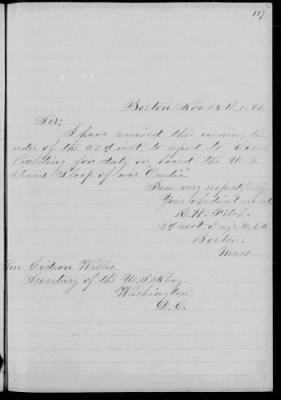 117
Boston Nov 25th 1861
Sir;
I have received this evening the
order of the 22d inst to report to Com
Paulding for duty on board the U.S.
Steam Sloop of war
I am very respectfully
Your obedient servant
H. Fitch
2d asst Engr U.S.N.
Boston
Mass
Hon Gideon Welles,
Secretary of the U.S. Navy
Washington
D.C.